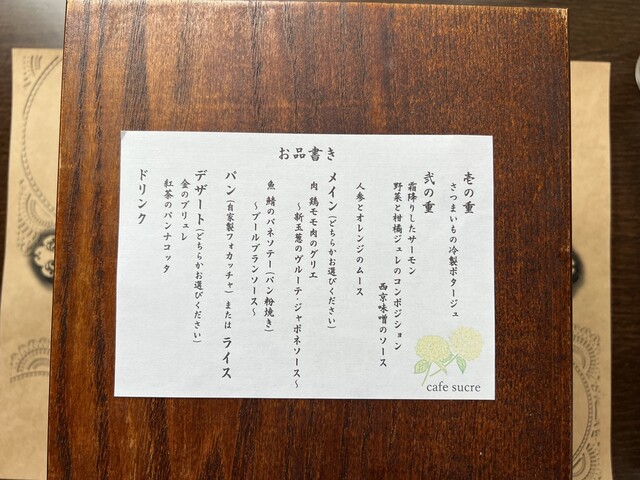 お品書き
壱の重
さつまいもの冷製ポタージュ
弐の重
霜降りしたサーモン
野菜と柑橘ジュレのコンポジション
西京味噌のソース
人参とオレンジのムース
メイン(どちらかお選びください)
肉 鶏モモ肉のグリエ
~新玉葱のヴルーテ・ジャポネソース~
魚 鯖のパネソテー(パン粉焼き)
~ブールブランソース~
パン(自家製フォカッチャ) または ライス
デザート(どちらかお選びください)
金のブリュレ
紅茶のパンナコッタ
ドリンク
cafe sucre